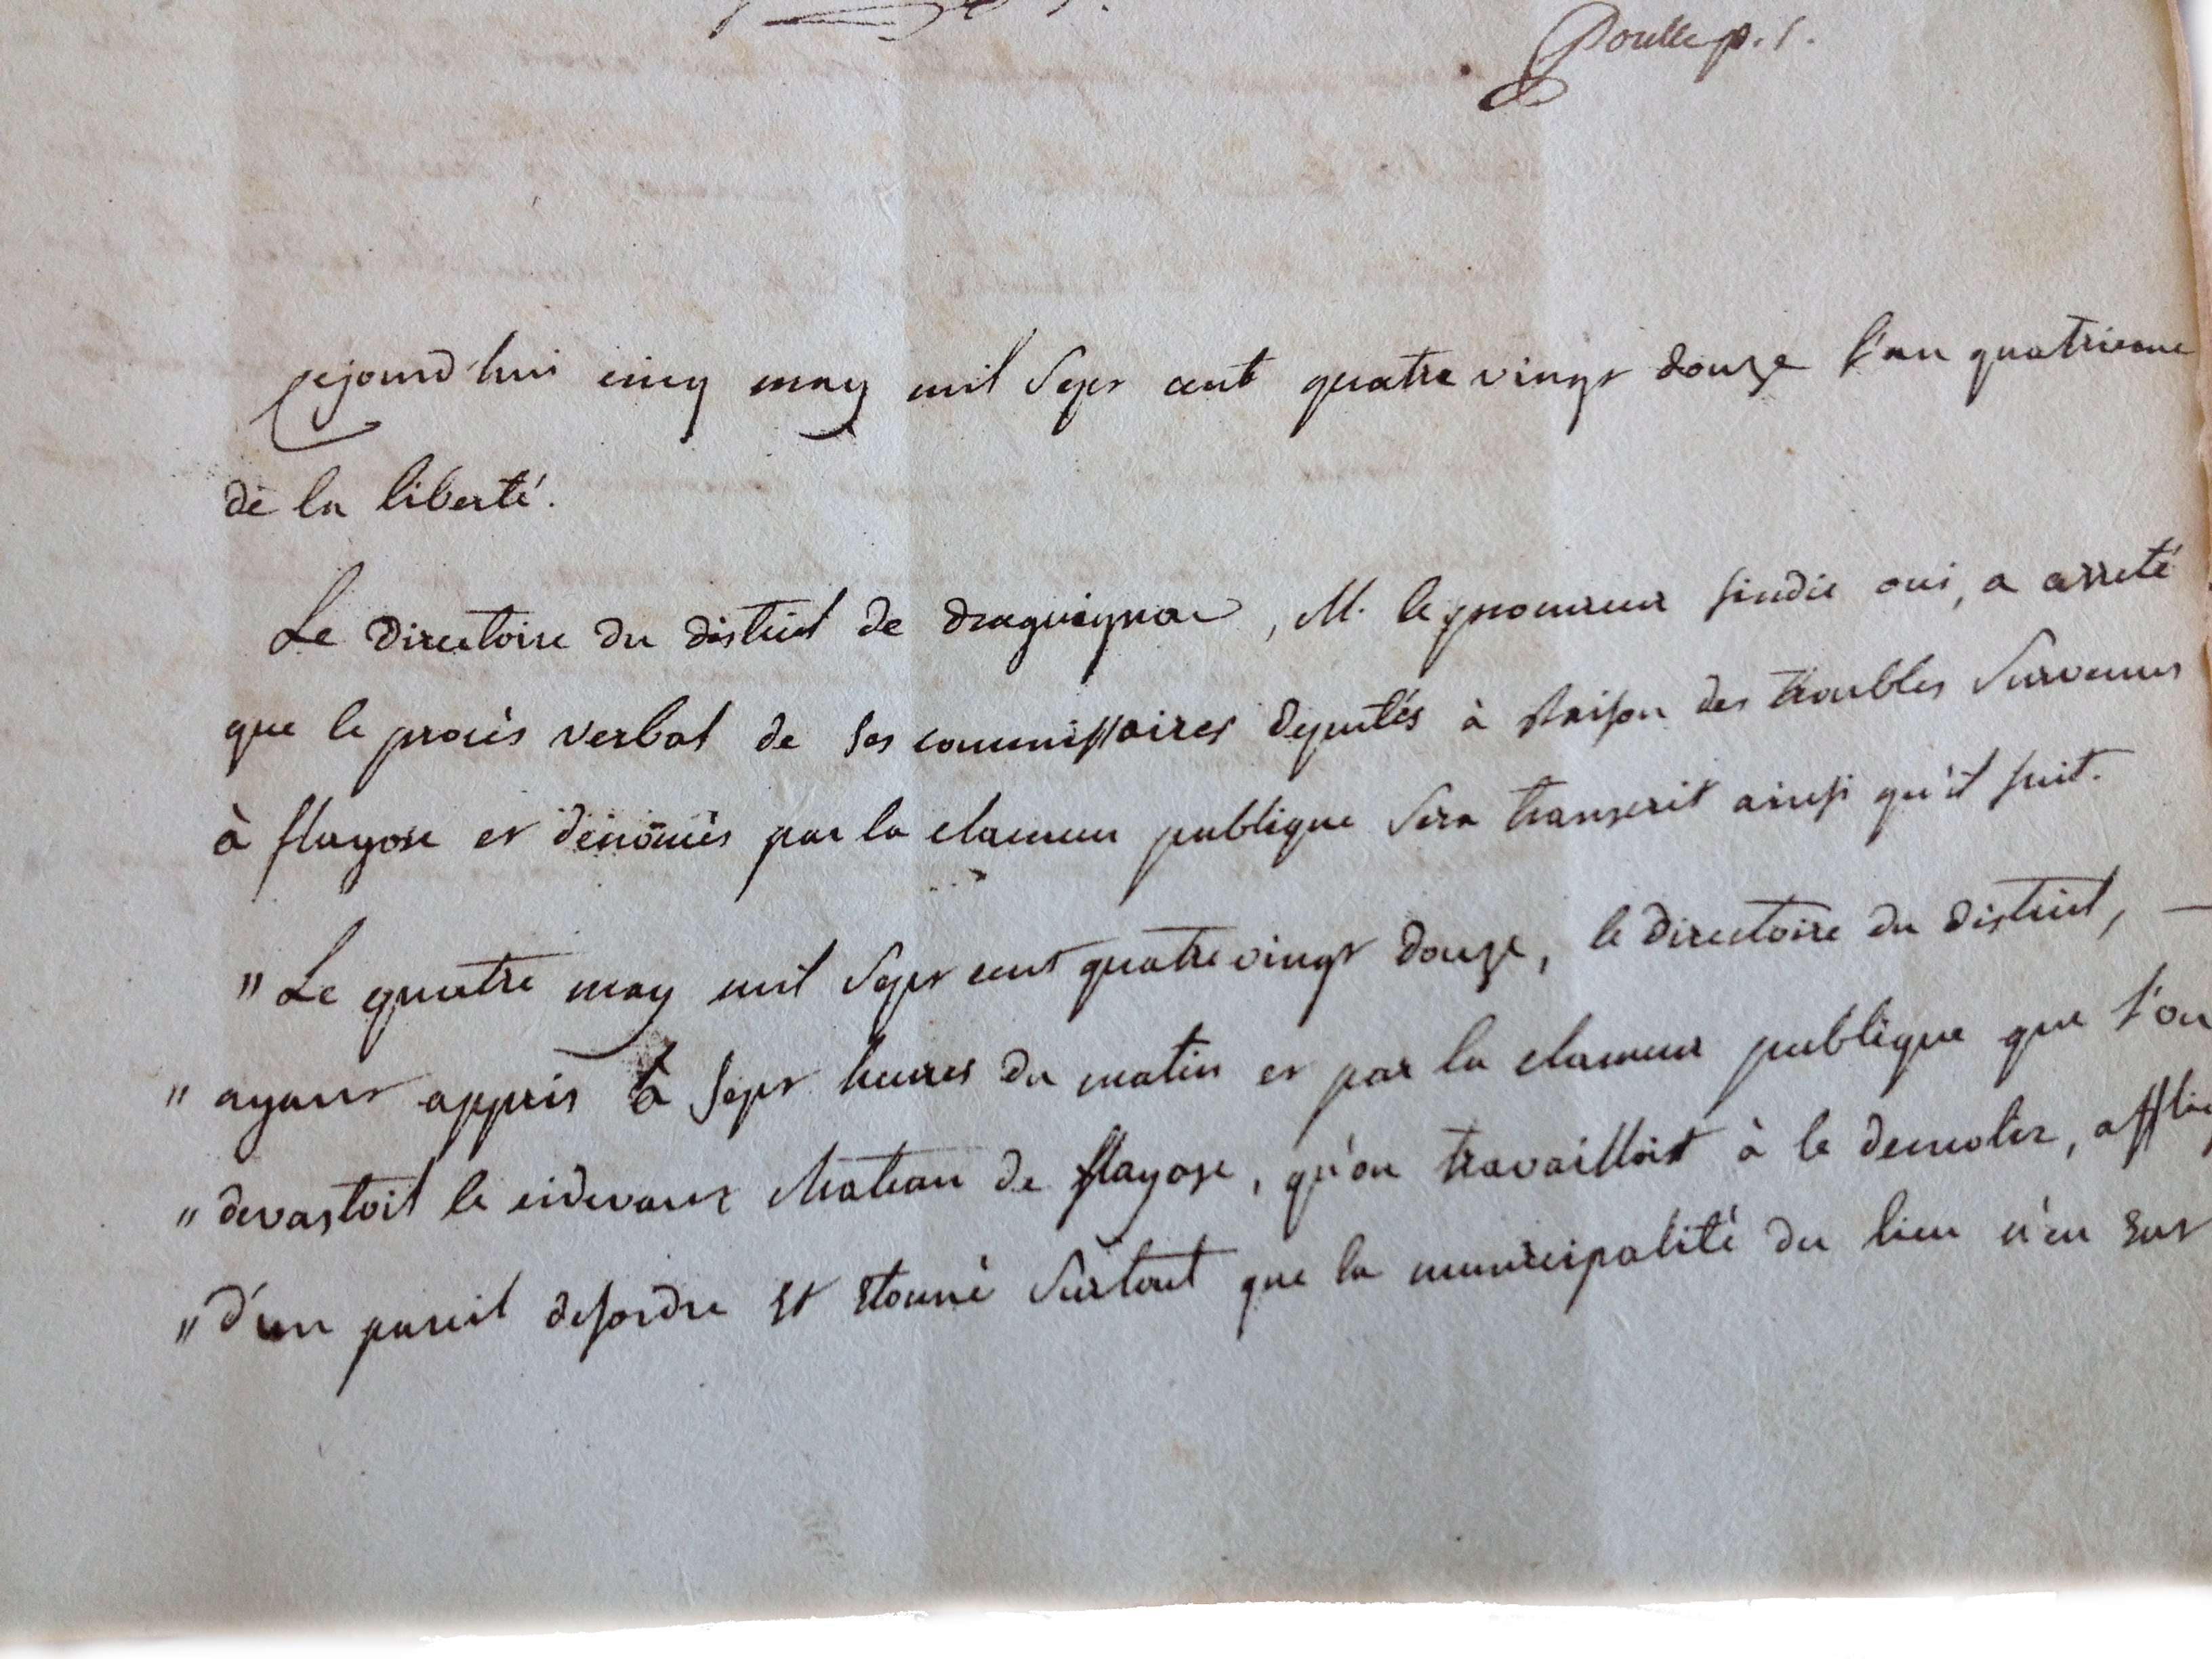 Poulle p. s.
Cejourd'hui cinq may mil sept cent quatre vingt douze l'an quatrieme
de la liberté.
Le directoire du district de draguignan, M. le procureur sindic oui, a arreté
que le procès verbal de ses commissaires deputés à raison des troubles survenus
à flayosc et dénoncés par la clameur publique sera transcrit ainsi qu'il suit.
" Le quatre may mil sept cent quatre vingt douze, le directoire du district, —
" ayant appris à sept heures du matin et par la clameur publique que l'on
" devastoit le cidevant chateau de flayosc, qu'on travailloit à le demolir,
" d'un pareil desordre et etonné surtout que la municipalité du lieu n'en eut